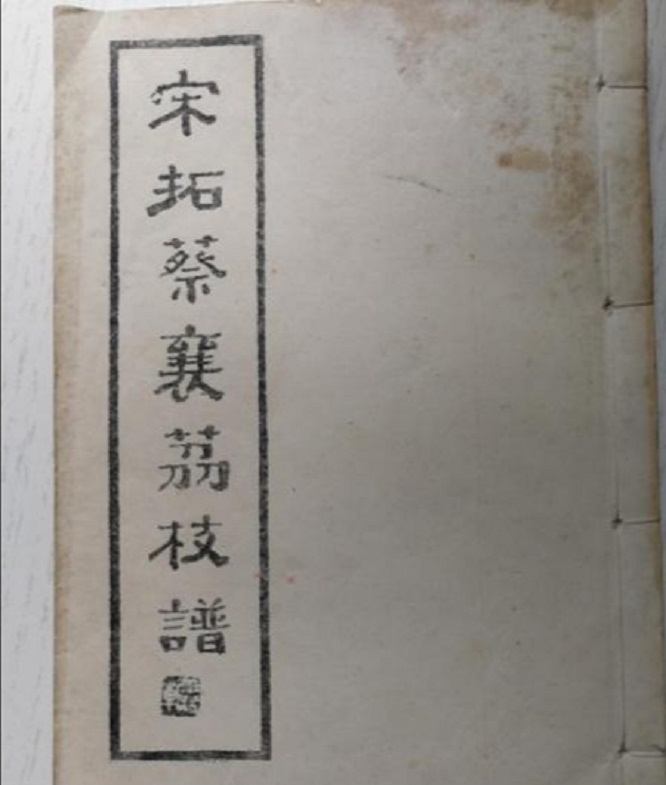 宋拓蔡襄茘枝譜